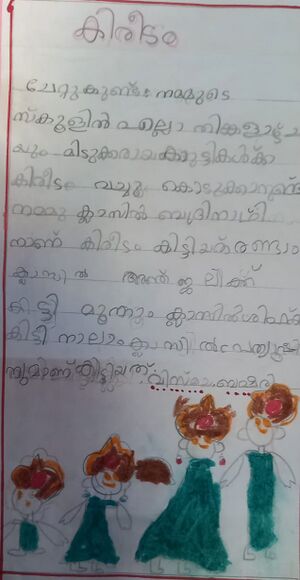 കിരീടം
ചേറ്റുകുണ്ട്: നമ്മുടെ
സ്കൂളിൽ എല്ലാ തിങ്കളാഴ്ച
യും മിടുക്കരായകുട്ടികൾക്ക്
കിരീടം വച്ചു കൊടുക്കാറുണ്ട്
നമ്മുടെ ക്ലാസിൽ
നാണ് കിരീടം കിട്ടിയത്രണ്ടാം
ക്ലാസിൽ ലിക്ക്
കിട്ടി മൂന്നാം ക്ലാസിൽ
കിട്ടി നാലാംക്ലാസിൽ
ന്യുമാണ് കിട്ടിയത് വിസ്മയ.